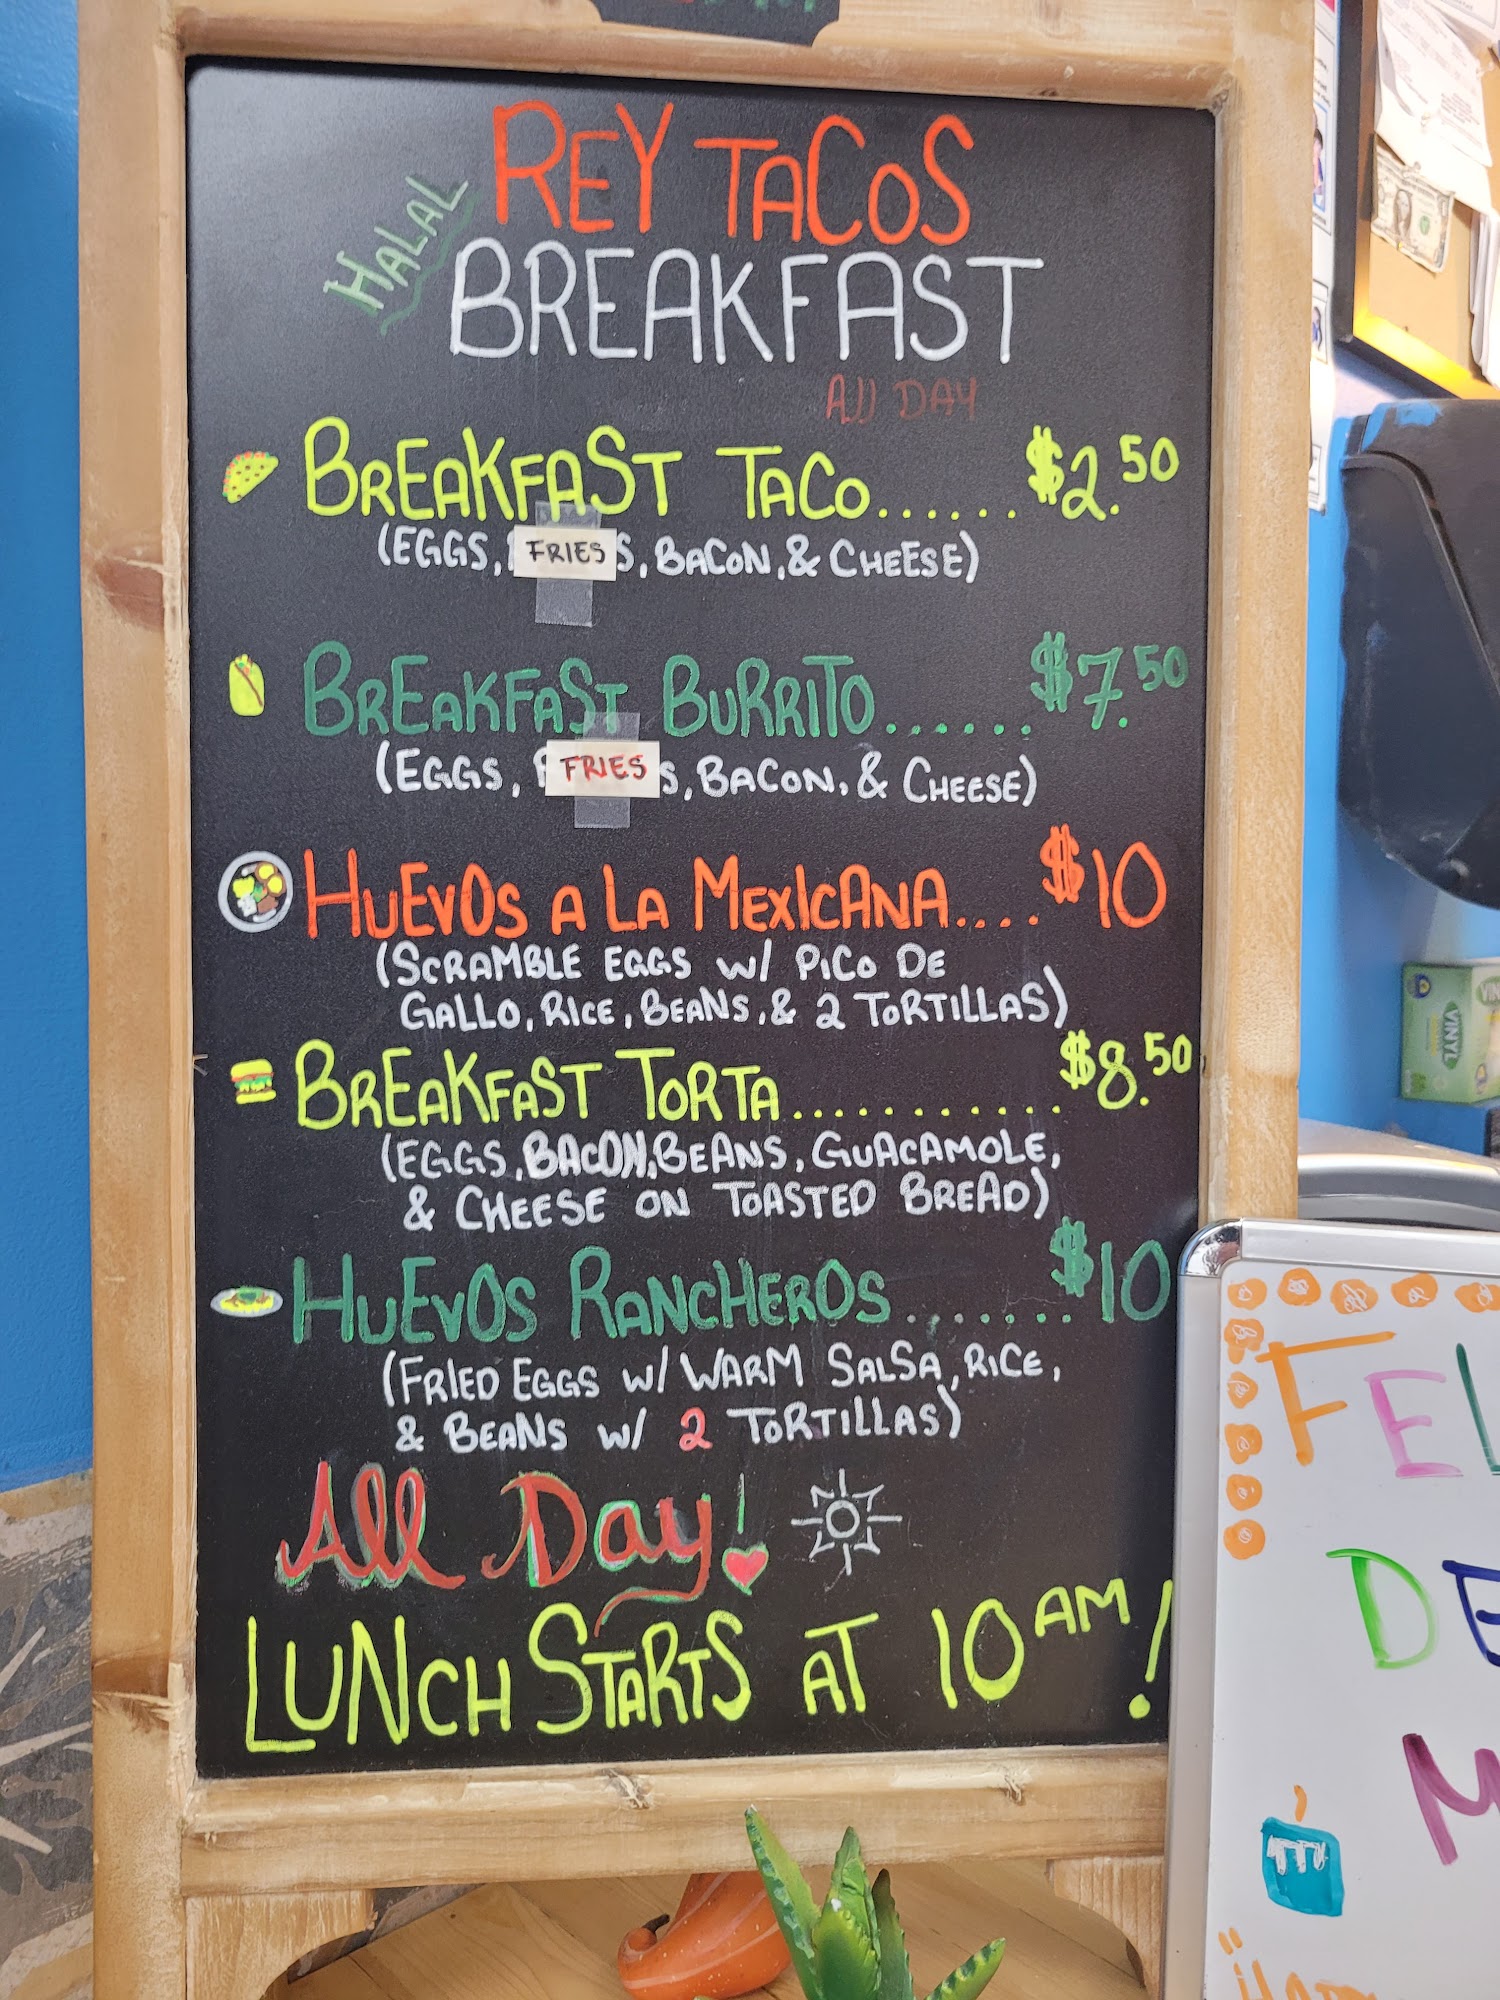 REY TACOS
HALAL
BREAKFAST
All DAY
BREAKFAST TACO...... $2.50
(EGGS, FRIES S, BACON, & CHEESE)
BREAKFAST BURRITO...... $7.50
(EGGS, FRIES S, BACON, & CHEESE)
HUEVOS A LA MEXICANA.... $10
(SCRAMBLE EGGS W/ PICO DE
GALLO, RICE, BEANS, & 2 TORTILLAS)
BREAKFAST TORTA............ $8.50
(EGGS, BACON, BEANS, GUACAMOLE,
& CHEESE ON TOASTED BREAD)
HUEVOS RANCHEROS....... $10
(FRIED EGGS W/ WARM SALSA, RICE,
& BEANS W/ 2 TORTILLAS)
All Day!
LUNCH STARTS AT 10AM!
VINYL
FEL
DE
M